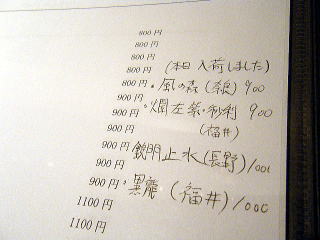 800円
800円
800円
800円 (本日入荷しました)
800円 ・風の森(奈良) 900
900円 ・燗左紫・秒利 900
900円 (福井)
900円
900円 鋭門止水(長野) 1000
900円 ・黒龍(福井) 1000
1100円
1100円